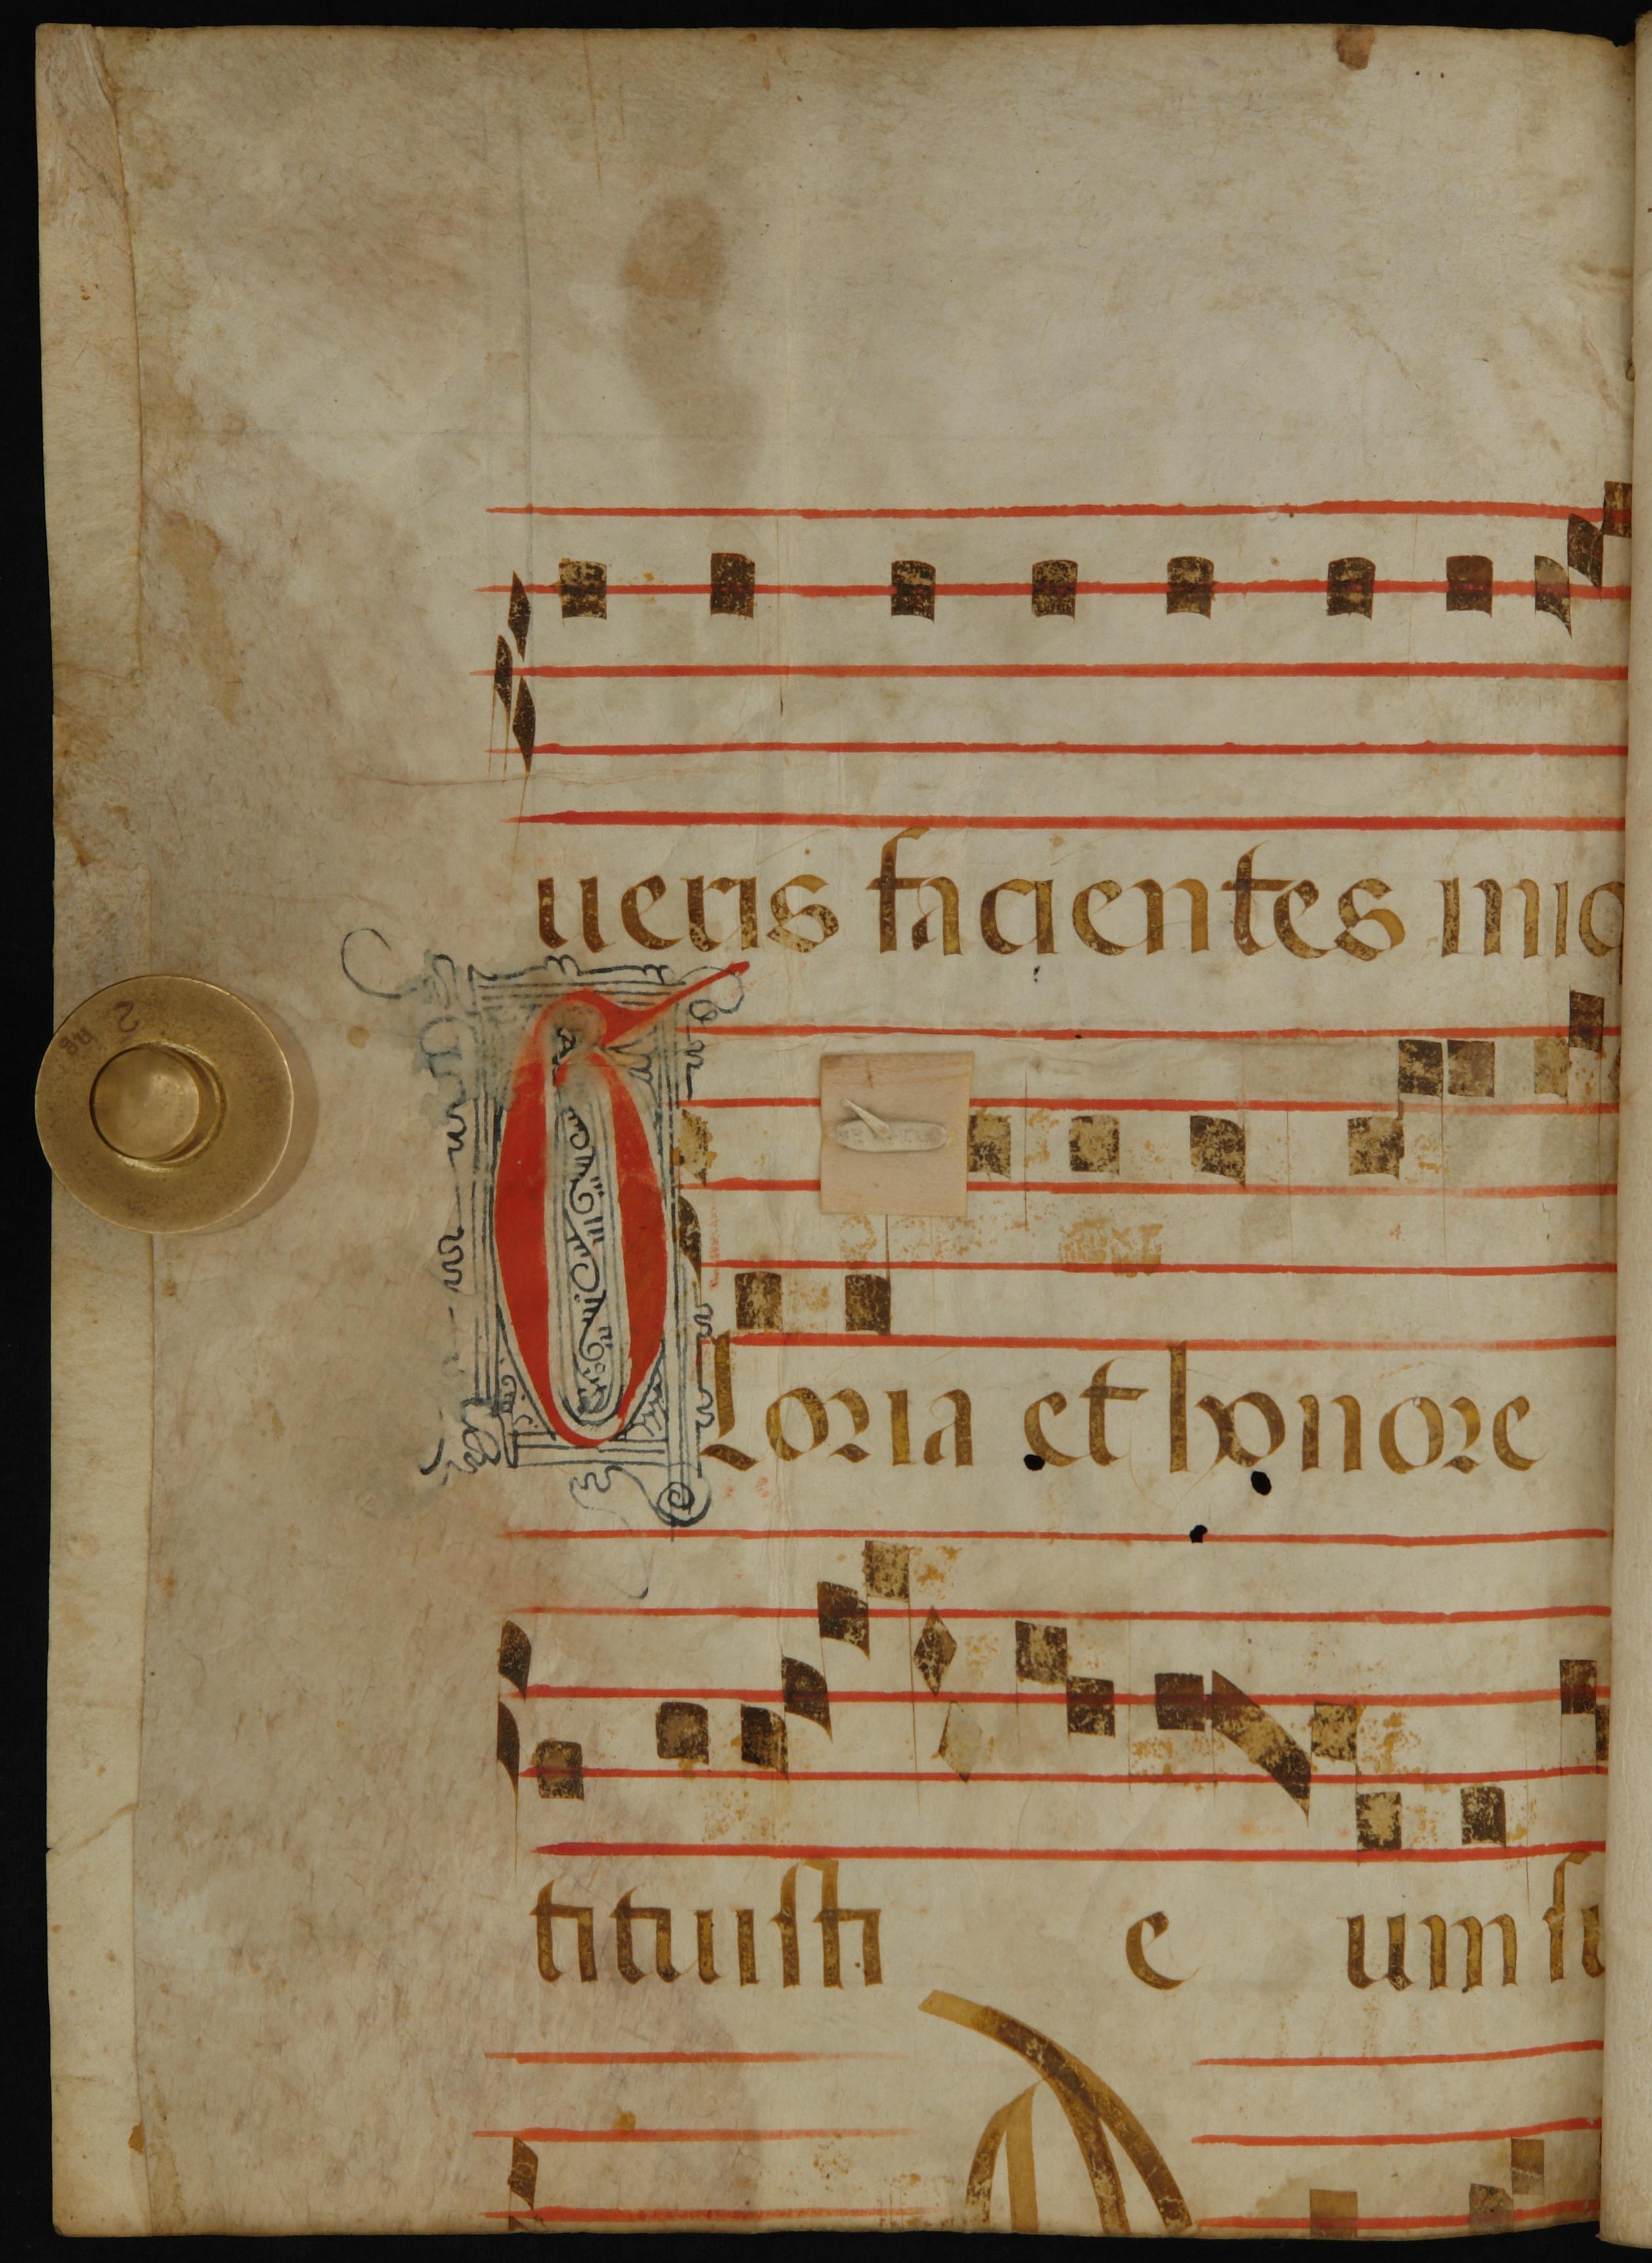 ueris facientes iniq
Gloria et honore
tituisti e um su